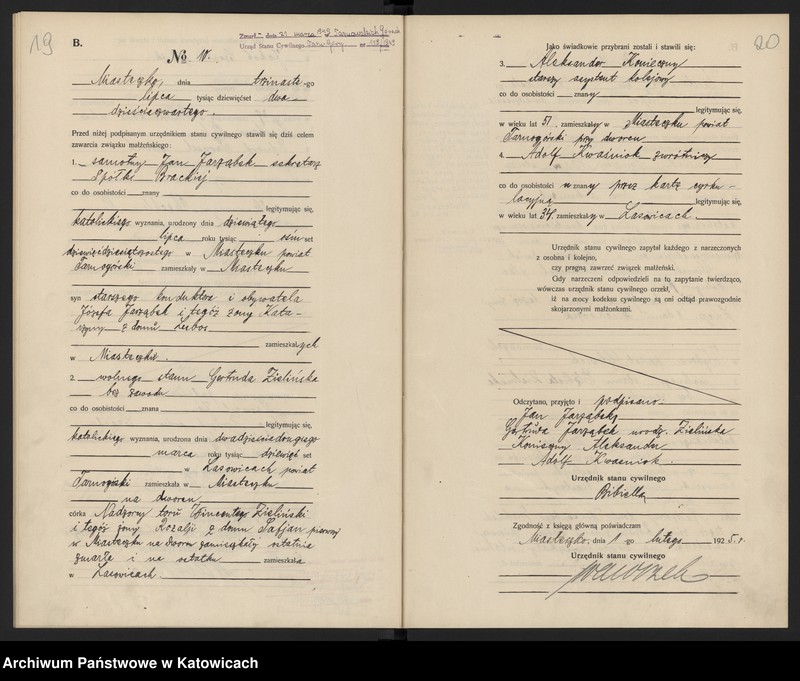 19
B.
Zmarł dnia 21 marca w Tarnowskich Górach
Urząd Stanu Cywilnego
№ 10.
Miasteczko, dnia trzynaste-go
lipca tysiąc dziewięćset dwa-
dzieściaczwartego.
Przed niżej podpisanym urzędnikiem stanu cywilnego stawili się dziś celem
zawarcia związku małżeńskiego:
1. samotny Jan Jarząbek sekretarz
Spółki Brackiej
co do osobistości znany
legitymując się,
katolickiego wyznania, urodzony dnia dziewiątego
lipca roku tysiąc ośm set
dziewięćdziesiątszóstego w Miasteczku powiat
Tarnogórski zamieszkały w Miasteczku
syn starszego konduktora i obywatela
Józefa Jarząbek i tegóż żony Kata-
rzyny z domu Lubos
zamieszkałych
w Miasteczku.
2. wolnego stanu Gertruda Zielińska
bez zawodu
co do osobistości znana
legitymując się,
katolickiego wyznania, urodzona dnia dwadzieściadrugiego
marca roku tysiąc dziewięć set
w Lasowicach powiat
Tarnogórski zamieszkała w Miasteczku
na dworcu
córka Nadzorcy toru Wincentego Zieliński
i tegóż żony Rozalji z domu Safjan pierwszy
w Miasteczku na dworcu zamieszkały ostatnia
zmarła i na ostatku zamieszkała
w Lasowicach.
20
Jako świadkowie przybrani zostali i stawili się:
3. Aleksander Konieczny
starszy asystent kolejowy
co do osobistości znany
legitymując się,
w wieku lat 51, zamieszkały w Miasteczku powiat
Tarnogórski przy dworcu
4. Adolf Kwaśniok zwrotniczy
co do osobistości uznany przez kartę cyrku-
lacyjną legitymując się,
w wieku lat 34, zamieszkały w Lasowicach.
Urzędnik stanu cywilnego zapytał każdego z narzeczonych
z osobna i kolejno,
czy pragną zawrzeć związek małżeński.
Gdy narzeczeni odpowiedzieli na to zapytanie twierdząco,
wówczas urzędnik stanu cywilnego orzekł,
iż na mocy kodeksu cywilnego są oni odtąd prawozgodnie
skojarzonymi małżonkami.
Odczytano, przyjęto i podpisano:
Jan Jarząbek
Gertruda Jarząbek urodz. Zielińska
Konieczny Aleksander
Adolf Kwaśniok
Urzędnik stanu cywilnego
Bibiella
Zgodność z księgą główną poświadczam
Miasteczko, dnia 1-go lutego 1925 r.
Urzędnik stanu cywilnego
Archiwum Państwowe w Katowicach